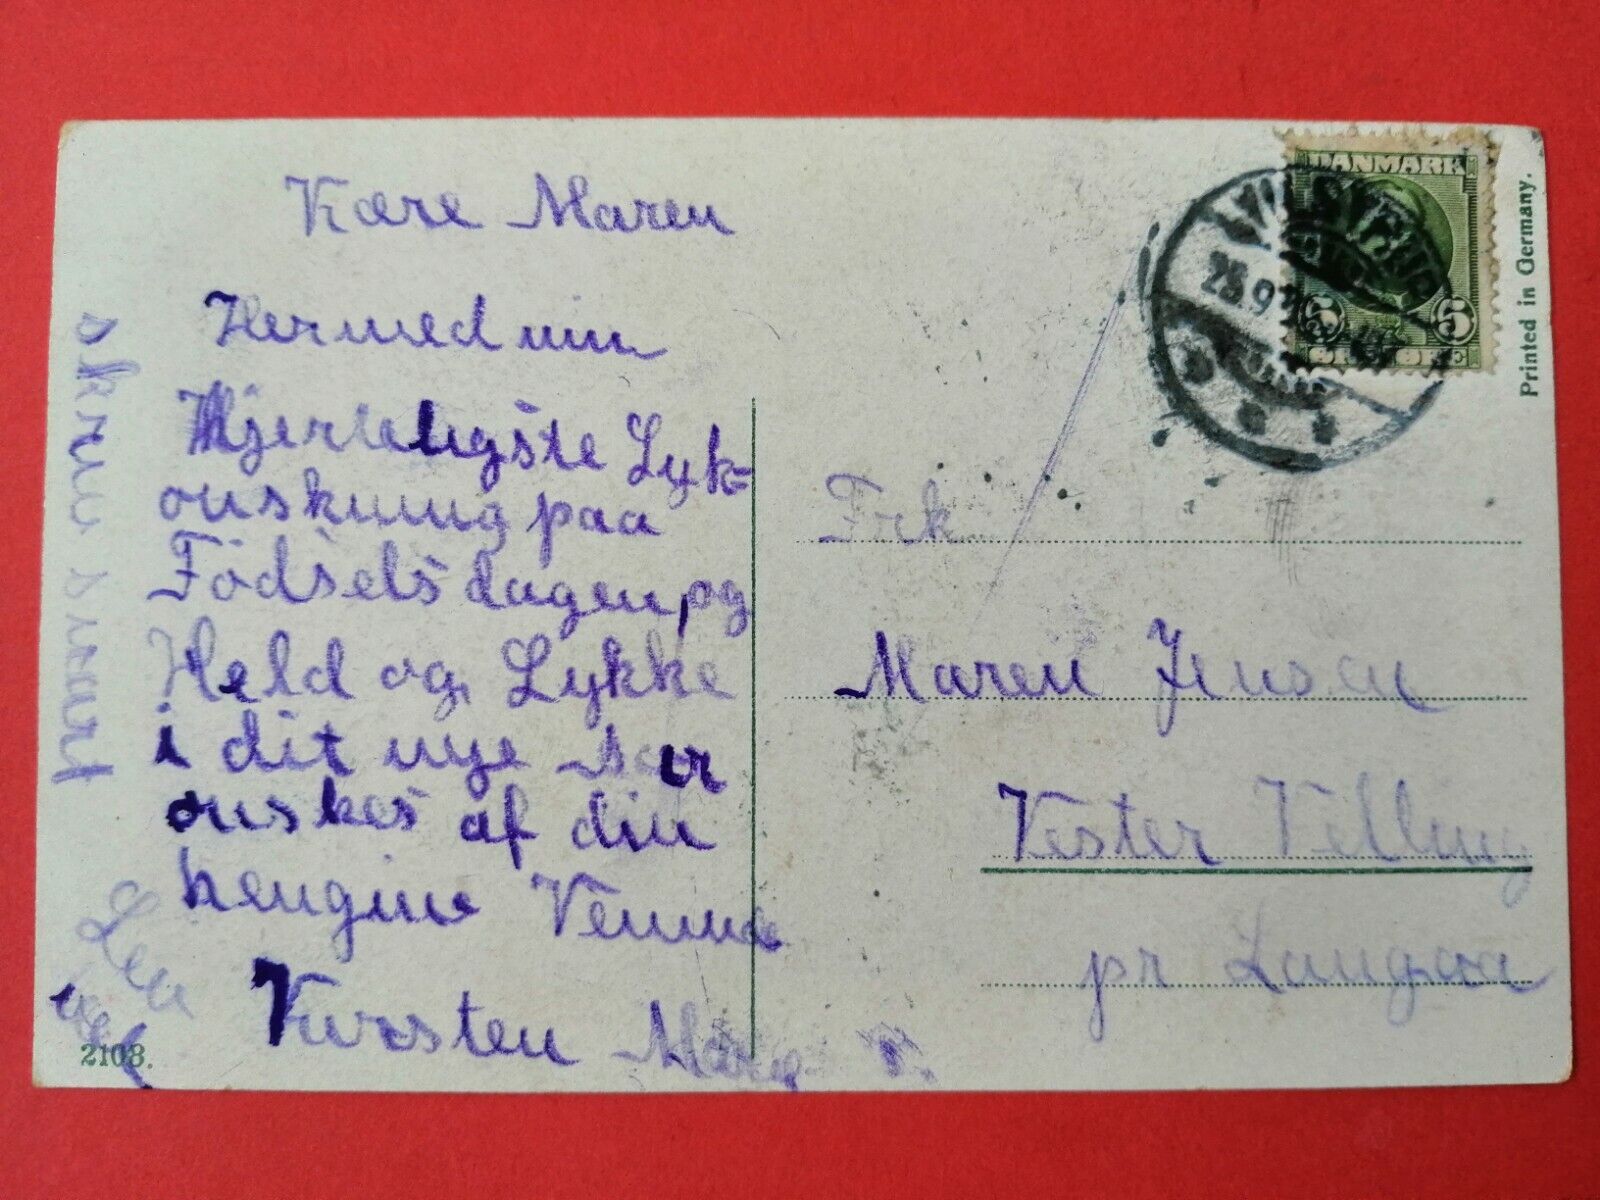 Kære Maren
Hermed min
Hjerteligste Lyk-
onskning paa
Födselsdagen, og
Held og Lykke
i dit nye Aar
onskes af din
hengivne Veninde
Kirsten Marg
Lev
vel
skriv snart
DANMARK
5 5
ØRE ØRE
Printed in Germany.
Frk
Maren Jensen
Vester Velling
pr Langaa
2103.